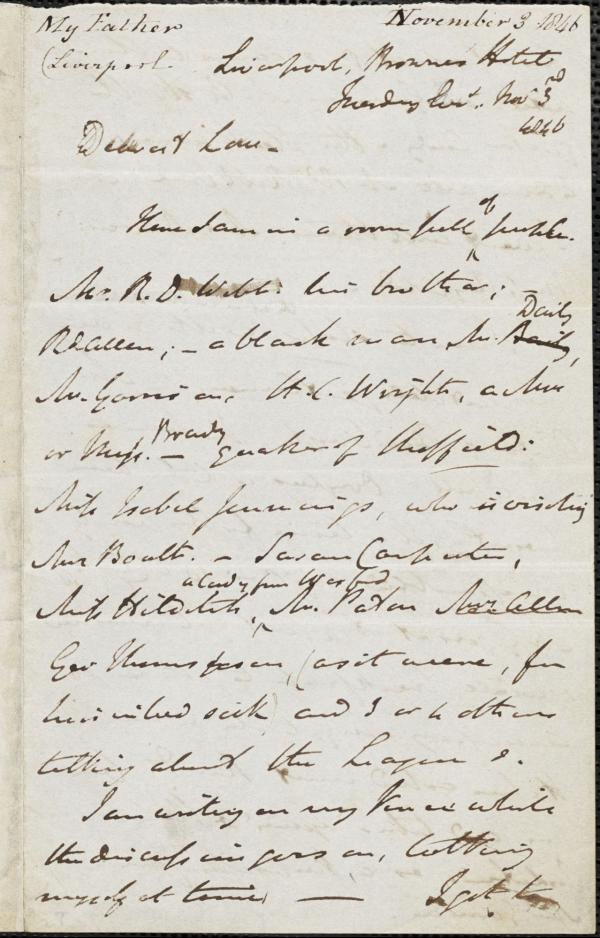 My Father November 3 1846
(Liverpool. Liverpool, Browns Hotel
Tuesday Evg. Nov 3rd
1846
Dearest Lou-
Here I am in a room full of people.
Mr. R. D. Webb: his brother; -
R Allen; - a black man Mr. Baily, Daily
Mr. Garrison, H. C. Wright, a Mrs
or Miss. - Brady quaker of Sheffield:
Miss Isabel Jennings, who is visiting
Mrs Boult. - Sarah Carpenter,
a lady from Wexford
Miss Hilditch, Mr. Paton Mrs Allen
Geo Thompson, (as it were, for
he is indeed sick) and 3 or 4 others
talking about the League &.
I am writing on my knee while
the discussion goes on, talking
myself at times — I got to